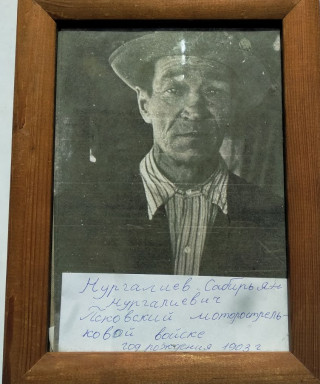 Нургалиев Сабирьян
Нургалиевич
Псковский мотострел-
ковой войске
год рождения 1903 г